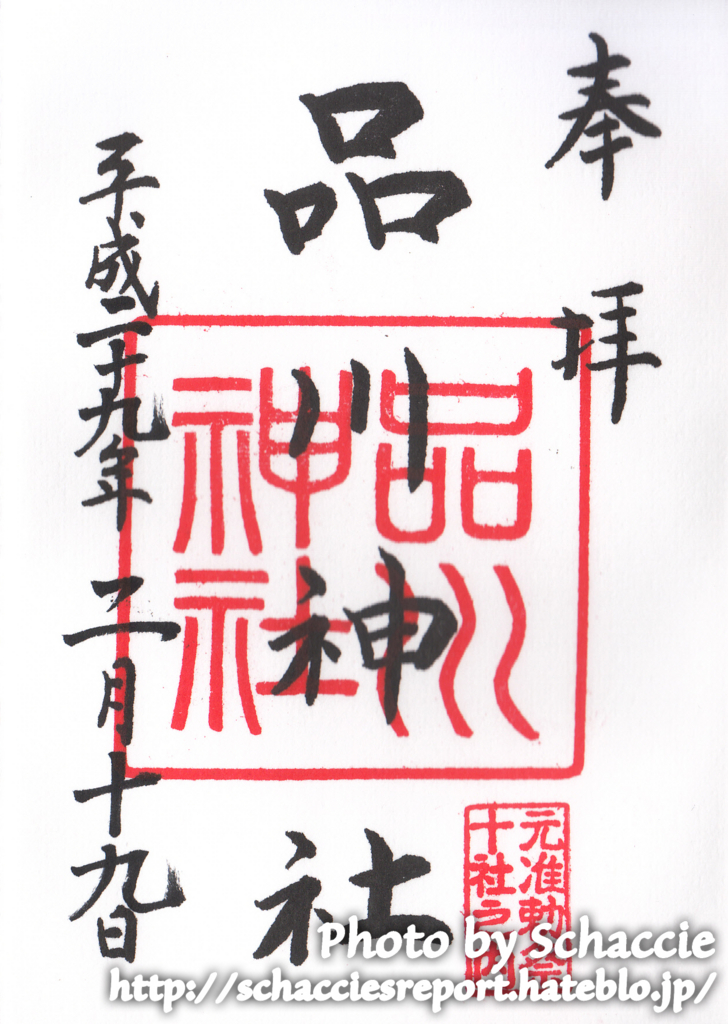 奉拝
品川神社
平成二十九年二月十九日
品川
神社
元准勅祭
十社之内
Photo by Schaccie
http://schacciesreport.hateblo.jp/